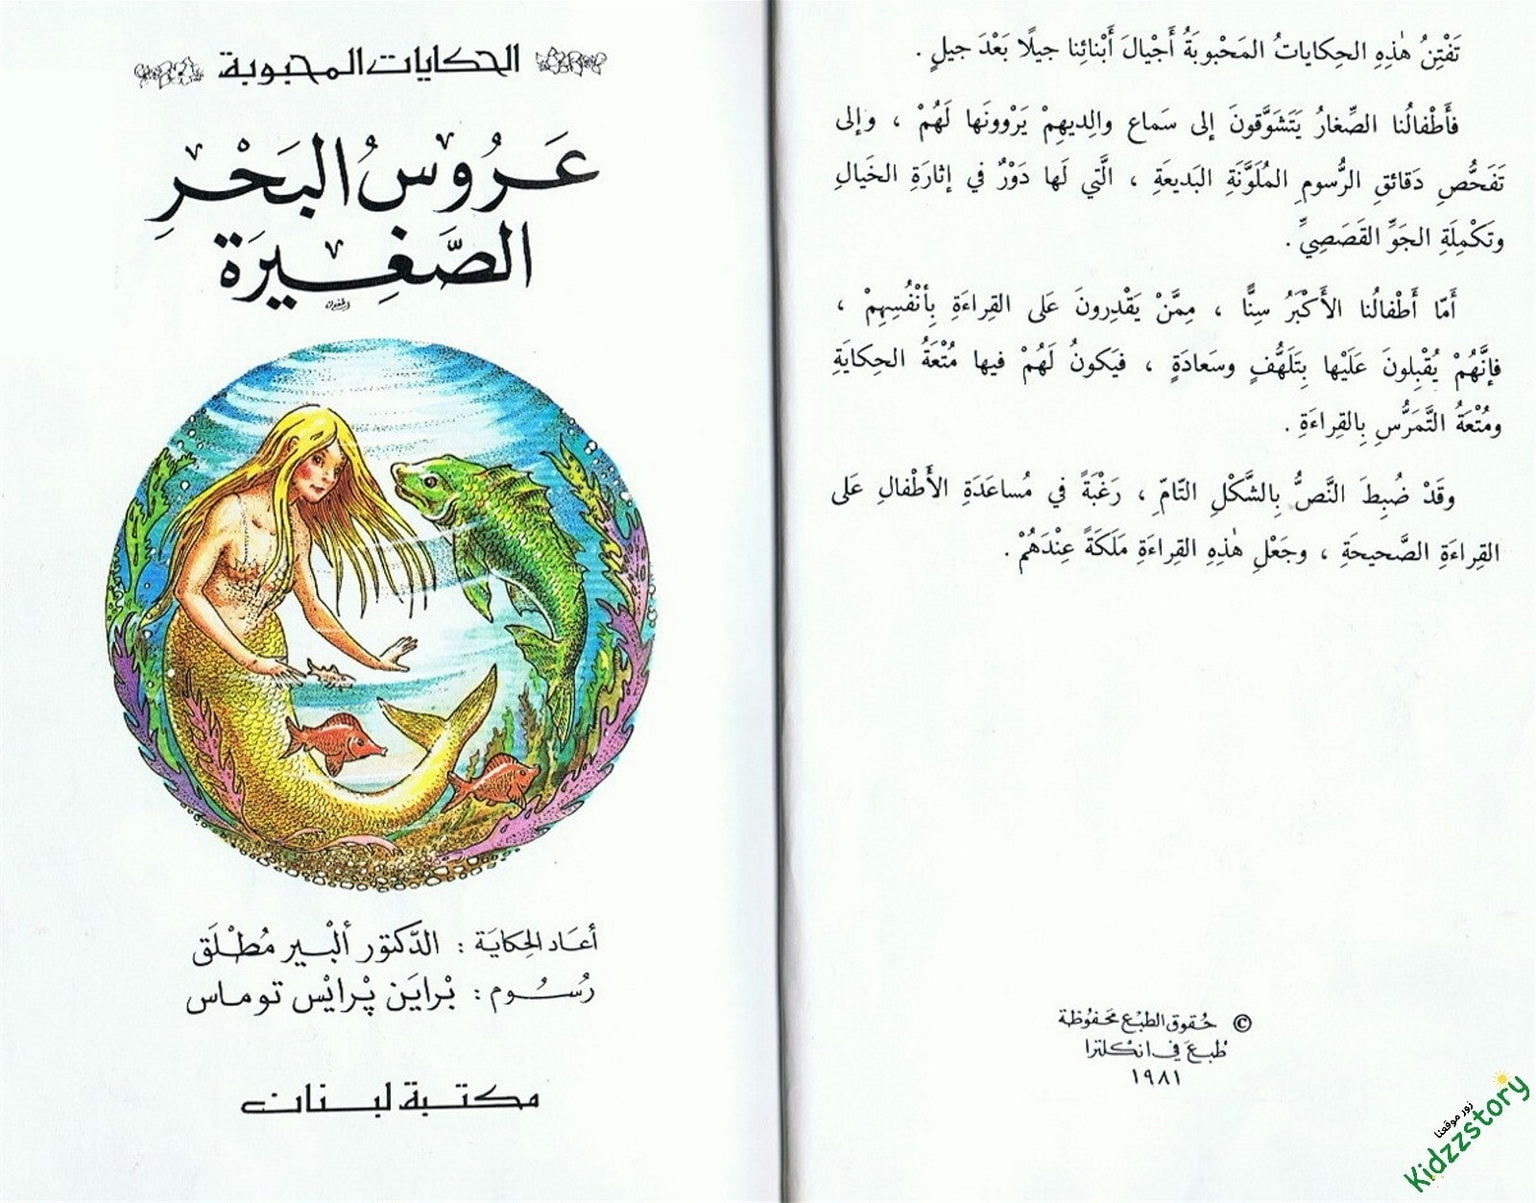 تَفْتِنُ هٰذِهِ الحِكاياتُ المَحْبوبَةُ أَجْيالَ أَبْنائِنا جيلًا بَعْدَ جيلٍ .
فَأَطْفالُنا الصِّغارُ يَتَشَوَّقونَ إلى سَماع والِديهِمْ يَرْوونَها لَهُمْ ، وإلى
تَفَحُّصِ دَقائقِ الرُّسومِ المُلَوَّنَةِ البَديعَةِ ، الَّتي لَها دَوْرٌ في إثارَةِ الخَيالِ
وتَكْمِلَةِ الجَوِّ القَصَصِيِّ .
أَمّا أَطْفالُنا الأَكْبَرُ سِنًّا ، مِمَّنْ يَقْدِرونَ عَلى القِراءَةِ بِأَنْفُسِهِمْ ،
فإنَّهُمْ يُقْبِلونَ عَلَيْها بِتَلَهُّفٍ وسَعادَةٍ ، فيَكونُ لَهُمْ فيها مُتْعَةُ الحِكايَةِ
ومُتْعَةُ التَّمَرُّسِ بِالقِراءَةِ .
وقَدْ ضُبِطَ النَّصُّ بِالشَّكْلِ التّامِّ ، رَغْبَةً في مُساعَدَةِ الأَطْفالِ عَلى
القِراءَةِ الصَّحيحَةِ ، وجَعْلِ هٰذِهِ القِراءَةِ مَلَكَةً عِنْدَهُمْ .
© حُقوق الطبْع مَحفوُظة
طُبعَ في انكلترا
١٩٨١
زور موقعنا
Kidzzstory
الحكايات المحبوبة
عَرُوسُ البَحْرِ
الصَّغِيرَة
أعَاد الحِكايَة : الدّكتور ألبْير مُطْلَق
رُسُوم : بْرايَن پْرايْس توماس
مكتبة لبنان